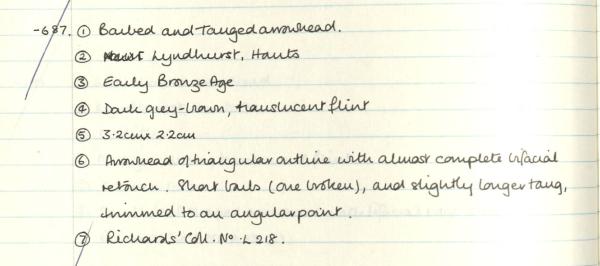 -687. ① Barbed and Tanged arrowhead.
② Lyndhurst, Hants
③ Early Bronze Age
④ Dark grey-brown, translucent flint
⑤ 3.2cm x 2.2cm
⑥ Arrowhead of triangular outline with almost complete bifacial
retouch. Short barbs (one broken), and slightly longer tang,
trimmed to an angular point.
⑦ Richards' Coll. No. L 218.